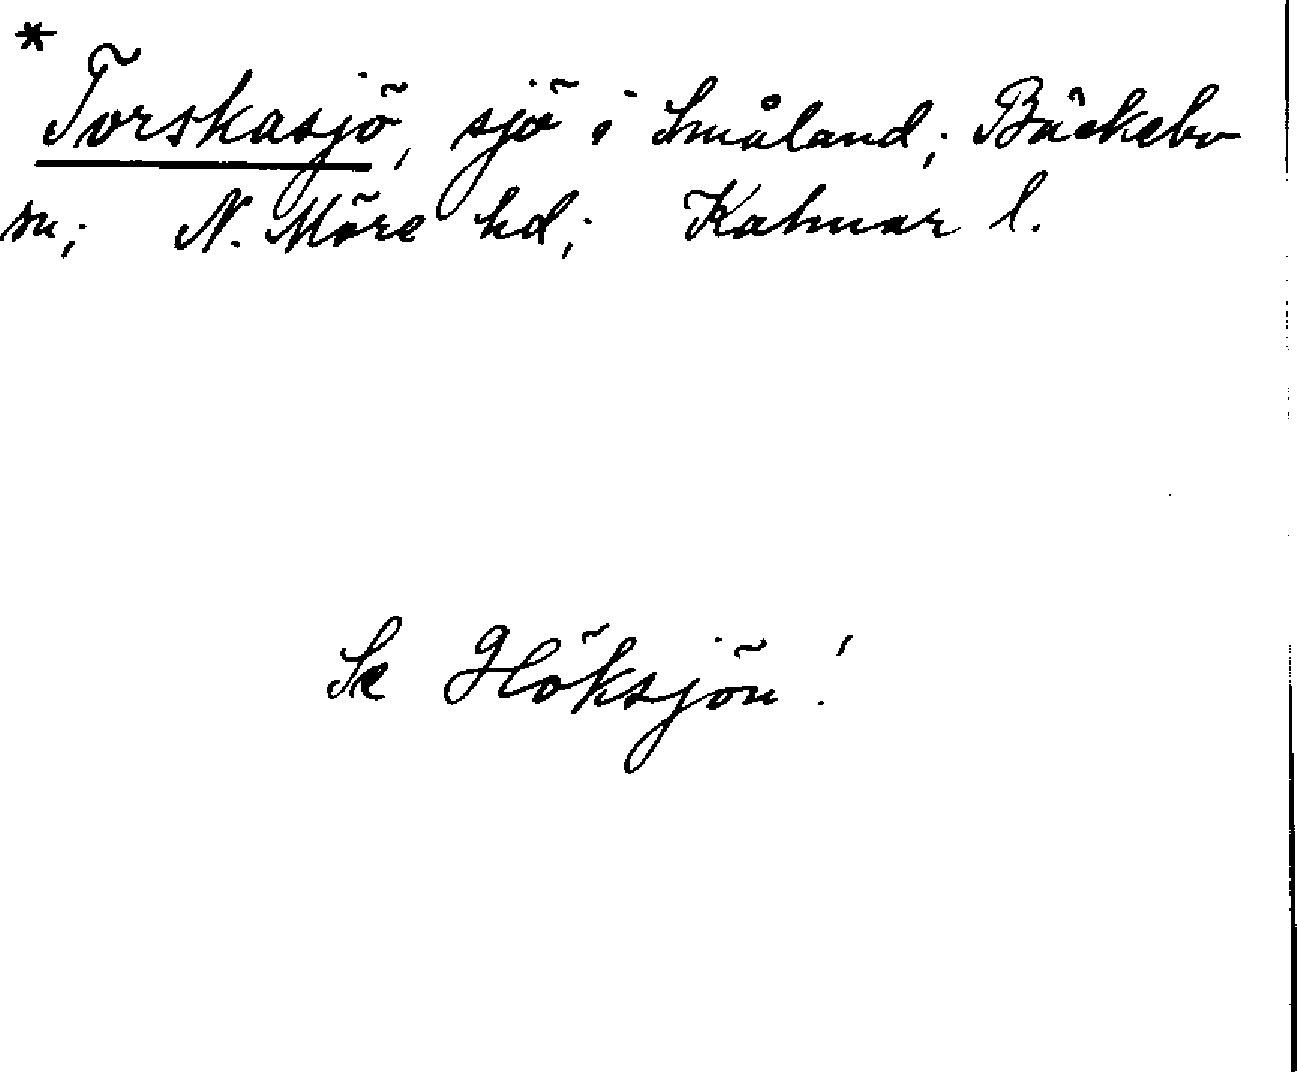 *
Torskasjö, sjö i Småland; Bäckebo
sn; N. Möre hd; Kalmar l.
Se Höksjön!